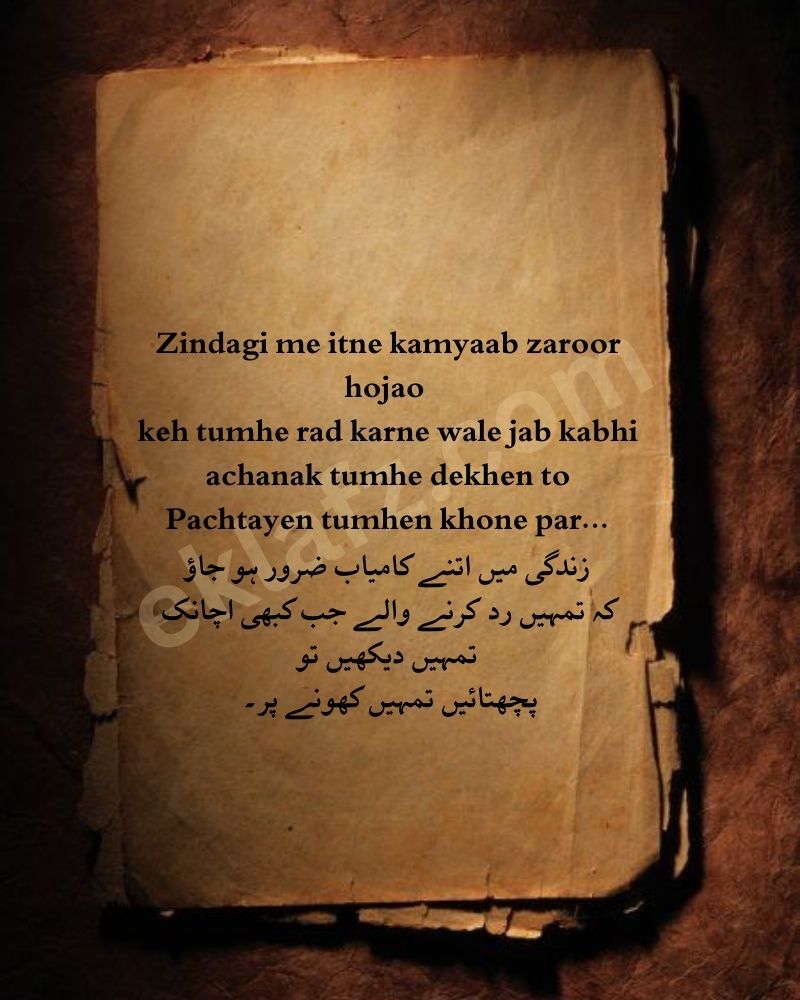 Zindagi me itne kamyaab zaroor
hojao
keh tumhe rad karne wale jab kabhi
achanak tumhe dekhen to
Pachtayen tumhen khone par...
زندگی میں اتنے کامیاب ضرور ہو جاؤ
کہ تمہیں رد کرنے والے جب کبھی اچانک
تمہیں دیکھیں تو
پچھتائیں تمہیں کھونے پر۔
eklafz.com